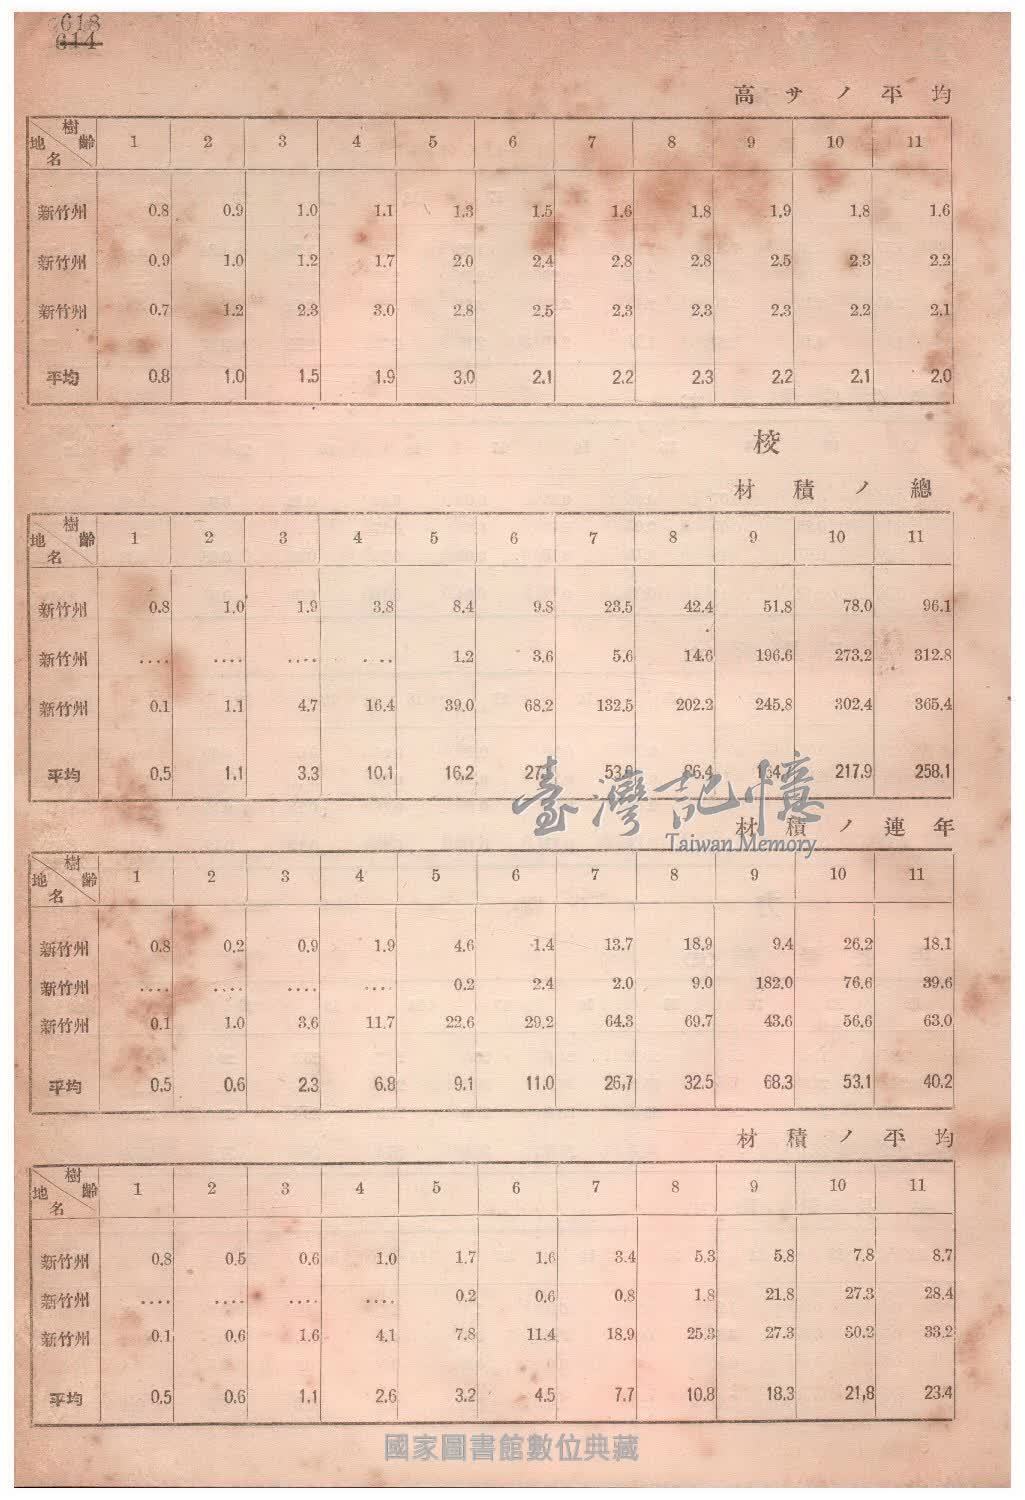 618
614
高サノ平均
樹齡 地名 1 2 3 4 5 6 7 8 9 10 11
新竹州 0.8 0.9 1.0 1.1 1.3 1.5 1.6 1.8 1.9 1.8 1.6
新竹州 0.9 1.0 1.2 1.7 2.0 2.4 2.8 2.8 2.5 2.3 2.2
新竹州 0.7 1.2 2.3 3.0 2.8 2.5 2.3 2.3 2.3 2.2 2.1
平均 0.8 1.0 1.5 1.9 3.0 2.1 2.2 2.3 2.2 2.1 2.0
材積ノ總
樹齡 地名 1 2 3 4 5 6 7 8 9 10 11
新竹州 0.8 1.0 1.9 3.8 8.4 9.8 23.5 42.4 51.8 78.0 96.1
新竹州 .... .... .... .... 1.2 3.6 5.6 14.6 196.6 273.2 312.8
新竹州 0.1 1.1 4.7 16.4 39.0 68.2 132.5 202.2 245.8 302.4 365.4
平均 0.5 1.1 3.3 10.1 16.2 217.9 258.1
臺灣記憶
Taiwan Memory
材積ノ連年
樹齡 地名 1 2 3 4 5 6 7 8 9 10 11
新竹州 0.8 0.2 0.9 1.9 4.6 1.4 13.7 18.9 9.4 26.2 18.1
新竹州 .... .... .... .... 0.2 2.4 2.0 9.0 182.0 76.6 39.6
新竹州 0.1 1.0 3.6 11.7 22.6 29.2 64.3 69.7 43.6 56.6 63.0
平均 0.5 0.6 2.3 6.8 9.1 11.0 26.7 32.5 68.3 53.1 40.2
材積ノ平均
樹齡 地名 1 2 3 4 5 6 7 8 9 10 11
新竹州 0.8 0.5 0.6 1.0 1.7 1.6 3.4 5.3 5.8 7.8 8.7
新竹州 .... .... .... .... 0.2 0.6 0.8 1.8 21.8 27.3 28.4
新竹州 0.1 0.6 1.6 4.1 7.8 11.4 18.9 25.3 27.3 30.2 33.2
平均 0.5 0.6 1.1 2.6 3.2 4.5 7.7 10.8 18.3 21.8 23.4
國家圖書館數位典藏